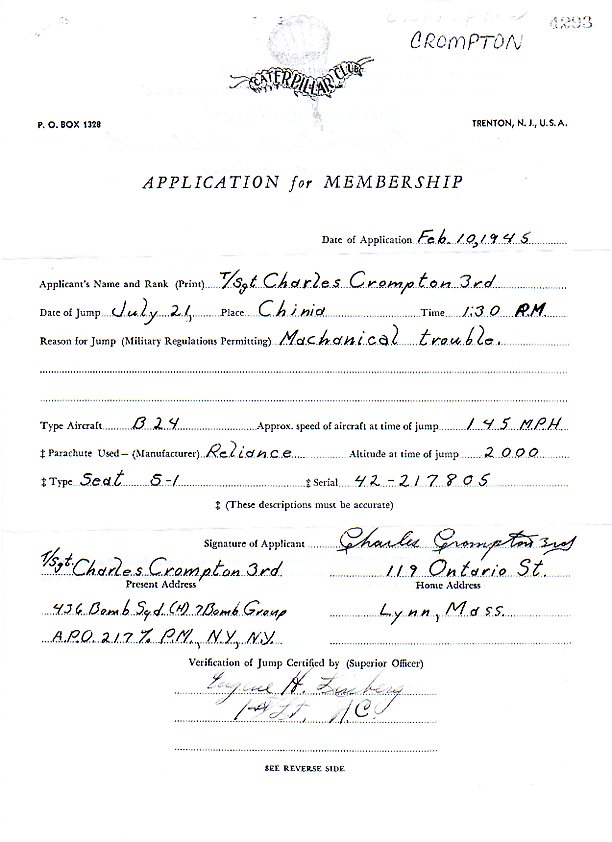 4293
CROMPTON
CATERPILLAR CLUB
P. O. BOX 1328 TRENTON, N. J., U. S. A.
APPLICATION for MEMBERSHIP
Date of Application Feb. 10, 1945
Applicant's Name and Rank (Print) T/Sgt Charles Crompton 3rd
Date of Jump July 21, Place China Time 1:30 P.M.
Reason for Jump (Military Regulations Permitting) Machanical trouble.
Type Aircraft B 24 Approx. speed of aircraft at time of jump 145 MPH
‡ Parachute Used— (Manufacturer) Reliance Altitude at time of jump 2000
‡ Type Seat S-1 ‡ Serial 42-217805
‡ (These descriptions must be accurate)
Signature of Applicant Charles Crompton 3rd
T/Sgt. Charles Crompton 3rd 119 Ontario St.
Present Address Home Address
436 Bomb Sqd. (H) 7 Bomb Group Lynn, Mass.
A.P.O. 217 % P.M., N.Y., N.Y.
Verification of Jump Certified by (Superior Officer)
Eugene H.
1st Lt. A.C.
SEE REVERSE SIDE